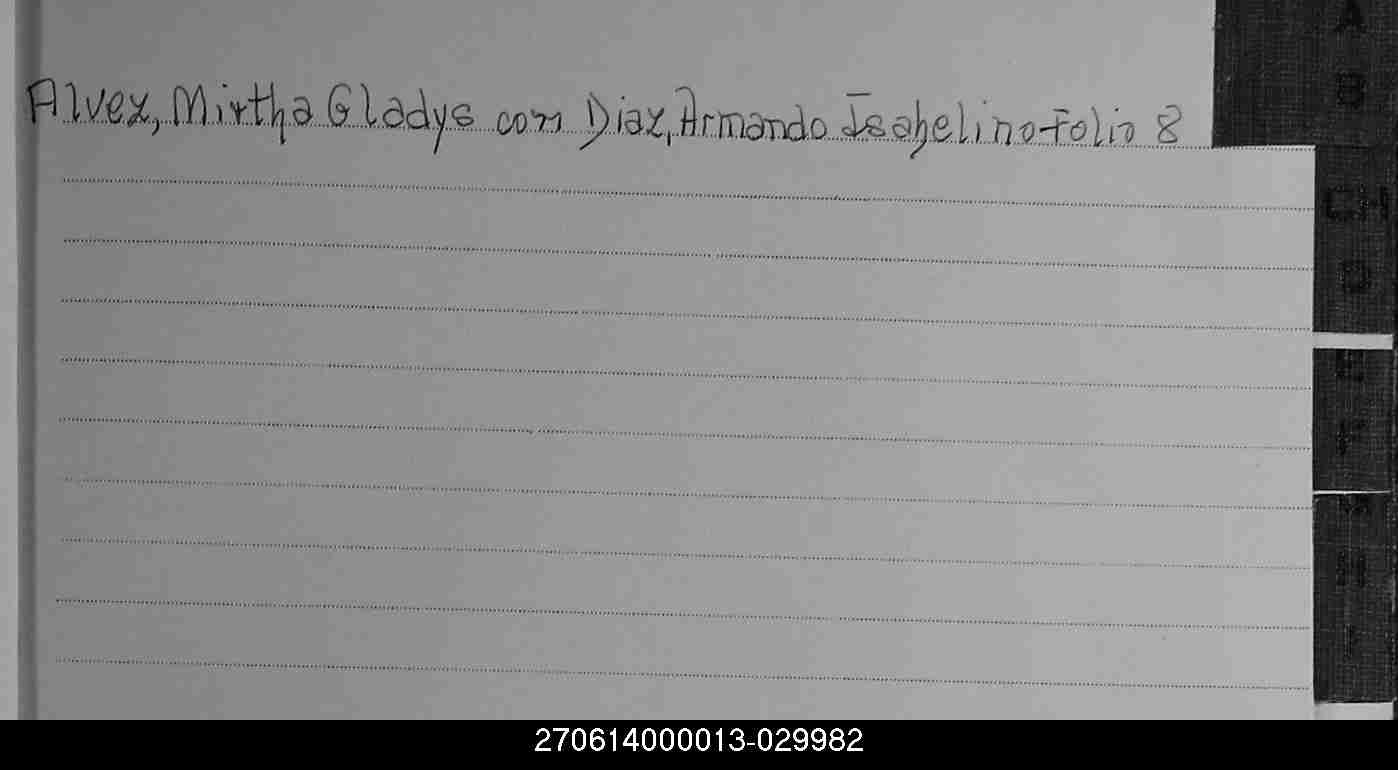 Alvez, Mirtha Gladys con Diaz, Armando Isabelino Folio 8
A
B
CH
D
E
F
H
I
270614000013-029982